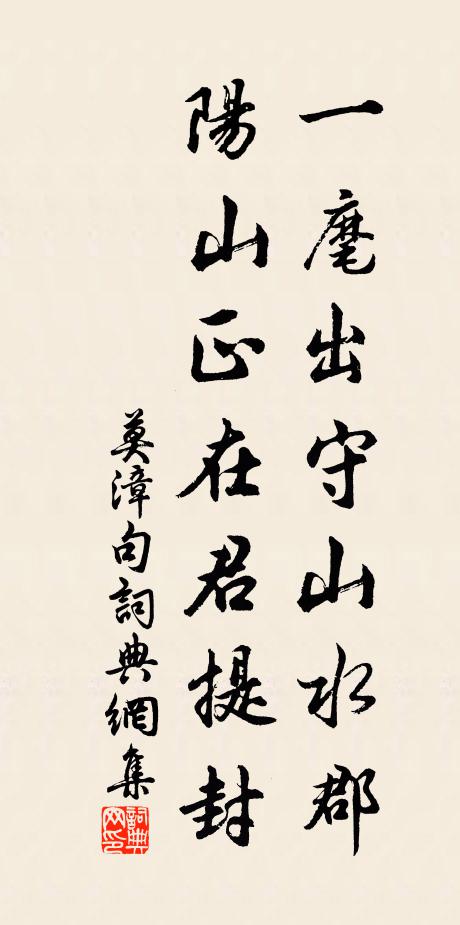 一麾出守山水郡
陽山正在君提封
莫漳句詞典網集
詞典网印